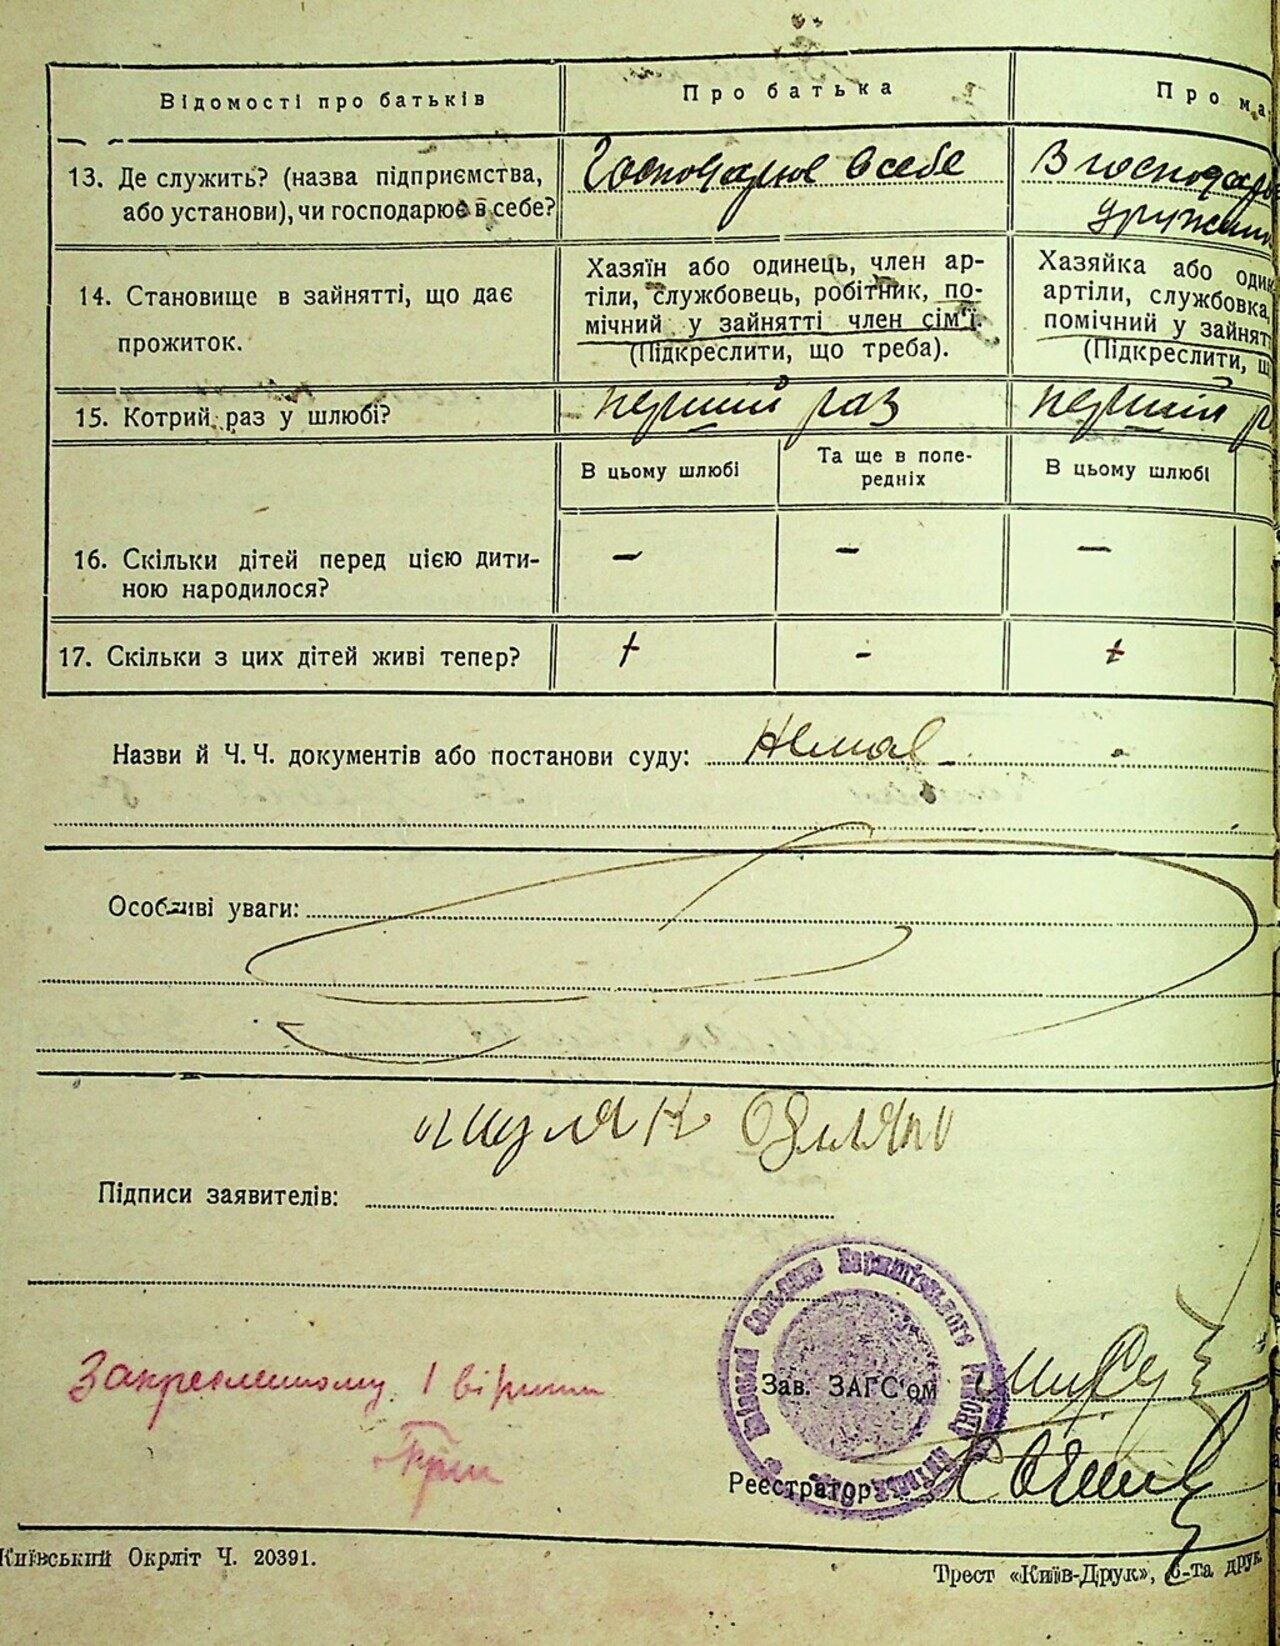 Відомості про батьків
Про батька
Про ма
13. Де служить? (назва підприємства,
або установи), чи господарює в себе?
Господарює в себе
В господар
дружин
14. Становище в зайнятті, що дає
прожиток.
Хазяїн або одинець, член ар-
тіли, службовець, робітник, по-
мічний у зайнятті член сім'ї.
(Підкреслити, що треба).
Хазяйка або один
артіли, службовка,
помічний у зайнят
(Підкреслити, щ
15. Котрий раз у шлюбі?
перший раз
перший р
В цьому шлюбі
Та ще в попе-
редніх
В цьому шлюбі
16. Скільки дітей перед цією дити-
ною народилося?
– – –
17. Скільки з цих дітей живі тепер?
+ - +
Назви й Ч. Ч. документів або постанови суду: Немає
Особливі уваги:
Підписи заявителів:
Закресленному 1 вірити
Зав. ЗАГС'ом
Реєстратор
Київський Окрліт Ч. 20391.
Трест «Київ-Друк», 6-та друк.